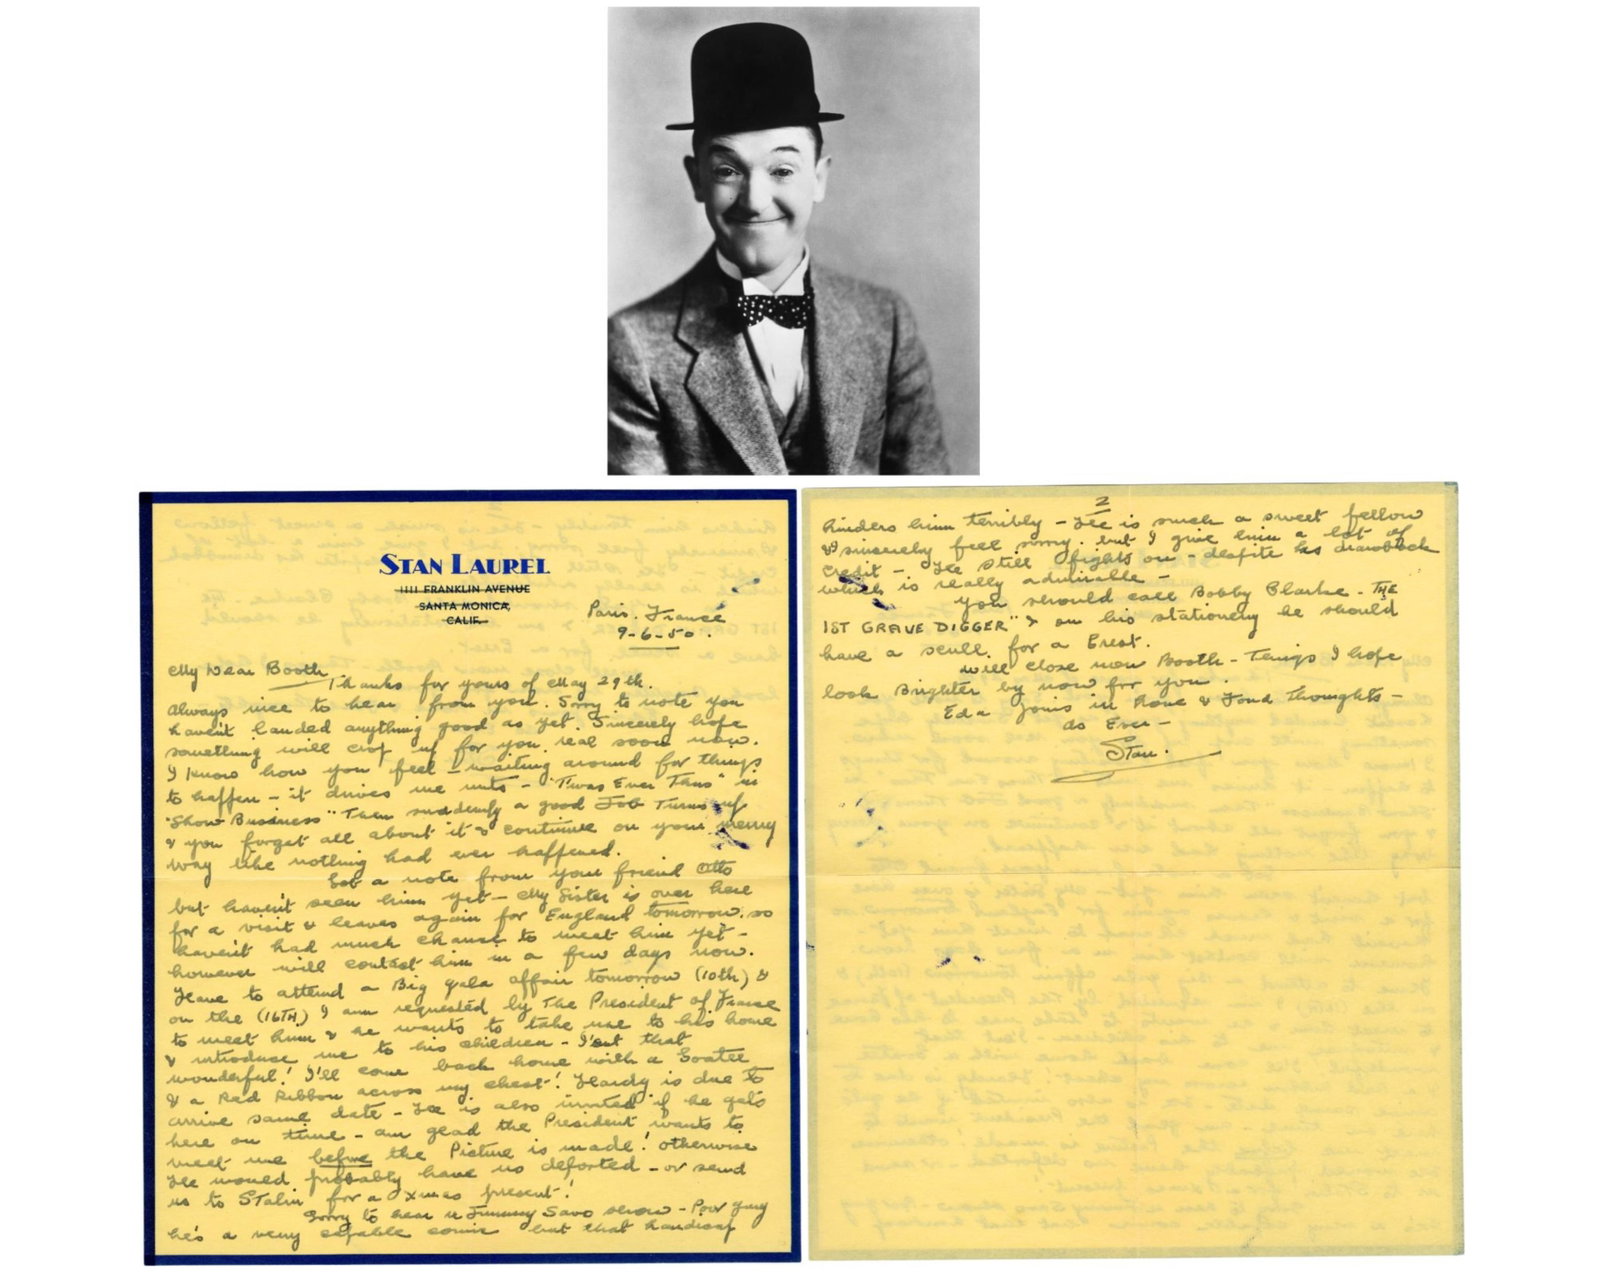 STAN LAUREL
1111 FRANKLIN AVENUE
SANTA MONICA,
CALIF.
Paris. France
9-6-50.
My Dear Booth
Thanks for yours of May 29th.
Always nice to hear from you. Sorry to note you
haven't landed anything good as yet. Sincerely hope
something will crop up for you real soon now.
I know how you feel - waiting around for things
to happen - it drives me nuts - "Twas Ever Thus" in
"Show Business" Then suddenly a good Job Turns up
& you forget all about it & continue on your merry
way like nothing had ever happened.
Got a note from your friend Otto
but haven't seen him yet - My Sister is over here
for a visit & leaves again for England tomorrow. so
haven't had much chance to meet him yet -
however will contact him in a few days now.
Have to attend a Big gala affair tomorrow (10th) &
on the (16TH) I am requested by The President of France
to meet him & he wants to take me to his home
& introduce me to his children - I'snt that
wonderful! I'll come back home with a Goatee
& a Red Ribbon across my chest! Hardy is due to
arrive same date - He is also invited if he gets
here on time - am glad the President wants to
meet me before the Picture is made! otherwise
He would probably have us deported - or send
us to Stalin for a Xmas present!
Sorry to hear re Jimmy Savo show - Poor guy
he's a very capable comic but that handicap
2
hinders him terribly - He is such a sweet fellow
& I sincerely feel sorry. but I give him a lot of
credit - He still fights on - despite his drawback
which is really admirable -
You should call Bobby Clarke - THE
1ST GRAVE DIGGER" & on his stationery he should
have a scull for a Crest.
Will close now Booth - Things I hope
look Brighter by now for you.
Eda joins in Love & Fond Thoughts -
As Ever -
Stan.